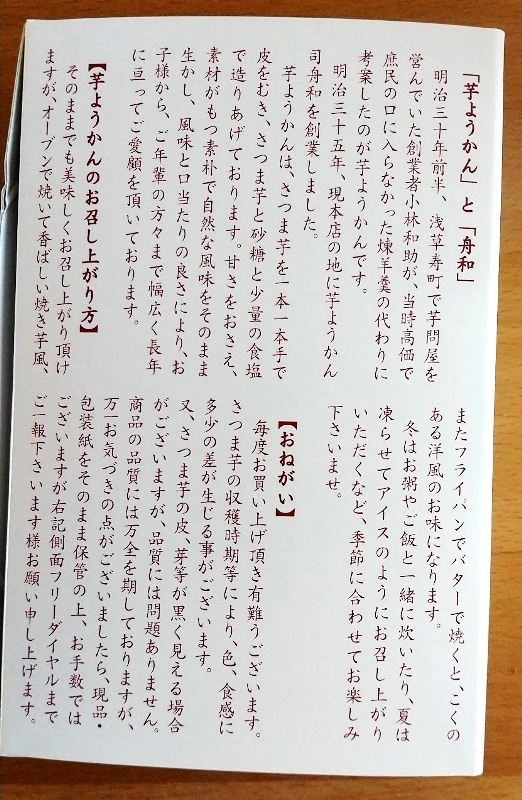 「芋ようかん」と「舟和」
明治三十年前半、浅草寿町で芋問屋を
営んでいた創業者小林和助が、当時高価で
庶民の口に入らなかった煉羊羹の代わりに
考業したのが芋ようかんです。
明治三十五年、現本店の地に芋ようかん
司舟和を創業しました。
芋ようかんは、さつま芋を一本一本手で
皮をむき、さつま芋と砂糖と少量の食塩
で造りあげております。甘さをおさえ、
素材がもつ素朴で自然な風味をそのまま
生かし、風味と口当たりの良さにより、お
子様から、ご年輩の方々まで幅広く長年
に亘ってご愛顧を頂いております。
【芋ようかんのお召し上がり方】
そのままでも美味しくお召し上がり頂け
ますが、オーブンで焼いて香ばしい焼き芋風、
またフライパンでバターで焼くと、こくの
ある洋風のお味になります。
冬はお粥やご飯と一緒に炊いたり、夏は
凍らせてアイスのようにお召し上がり
いただくなど、季節に合わせてお楽しみ
下さいませ。
【おねがい】
毎度お買い上げ頂き有難うございます。
さつま芋の収穫時期等により、色、食感に
多少の差が生じる事がございます。
又、さつま芋の皮、芽等が黒く見える場合
がございますが、品質には問題ありません。
商品の品質には万全を期しておりますが、
万一お気づきの点がございましたら、現品・
包装紙をそのまま保管の上、お手数では
ございますが右記側面フリーダイヤルまで
ご一報下さいます様お願い申し上げます。